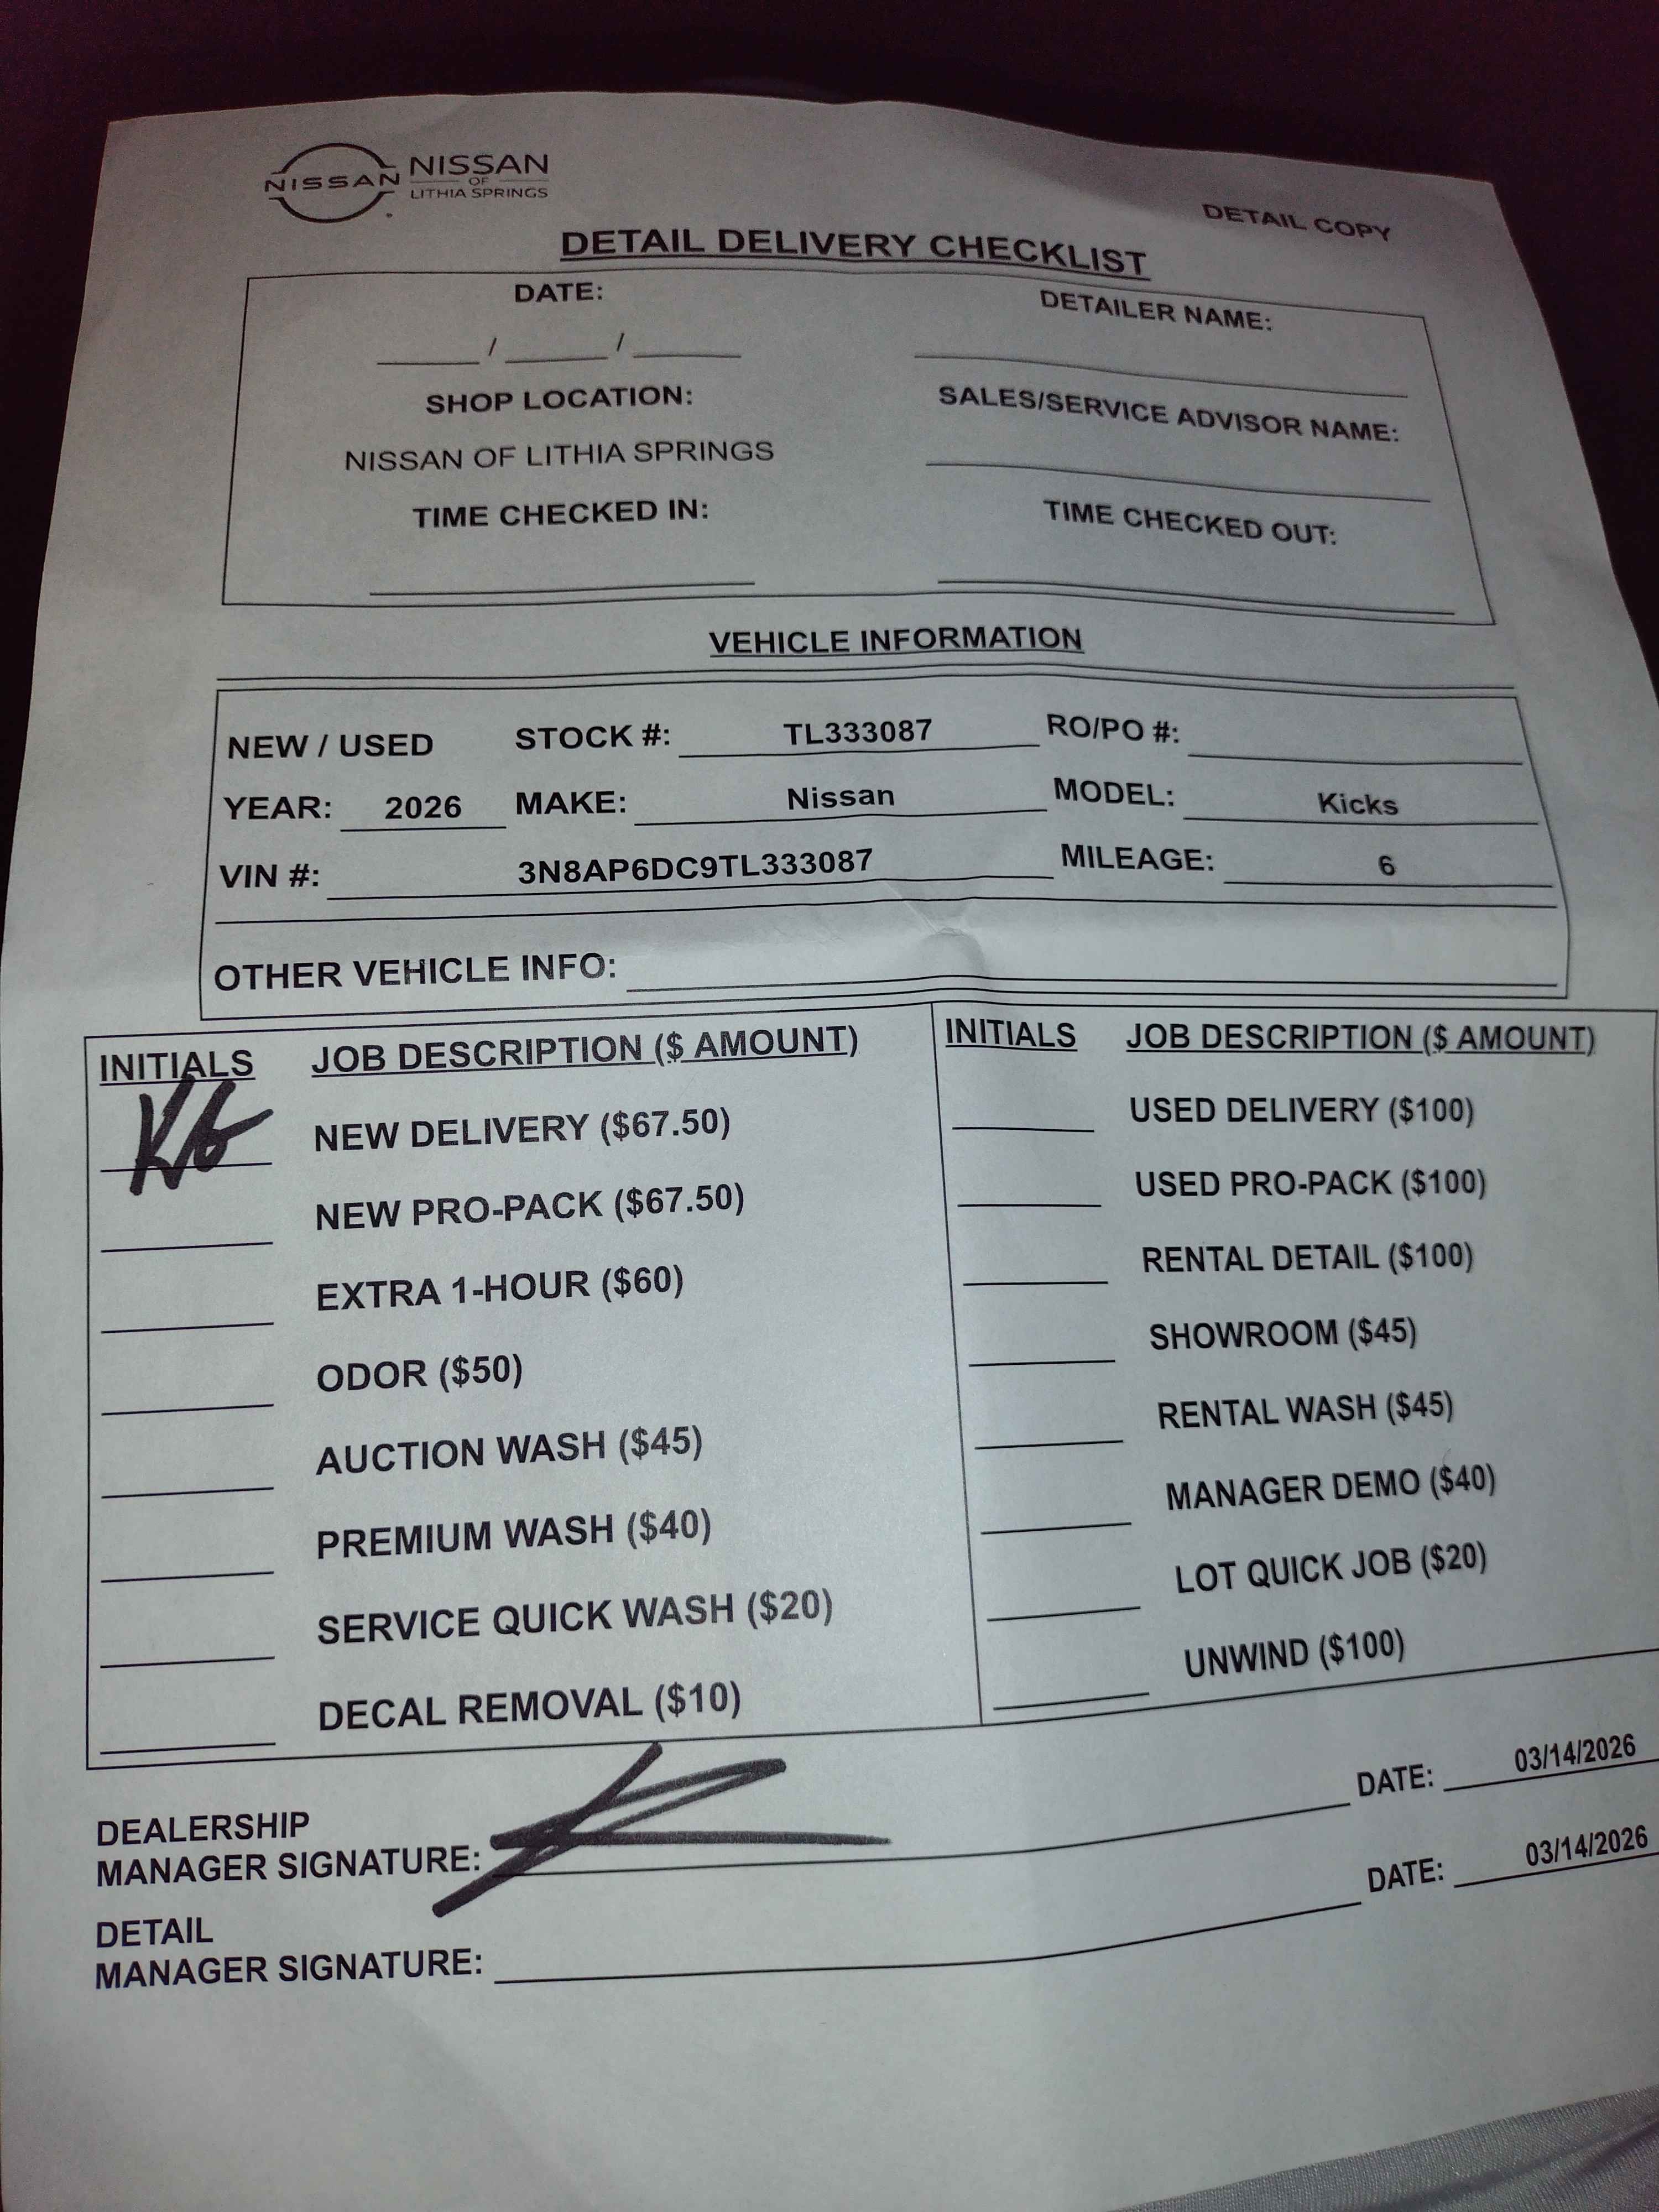 NISSAN
NISSAN
OF
LITHIA SPRINGS
DETAIL COPY
DETAIL DELIVERY CHECKLIST
DATE:
DETAILER NAME:
____/____/____
SHOP LOCATION:
SALES/SERVICE ADVISOR NAME:
NISSAN OF LITHIA SPRINGS
TIME CHECKED IN:
TIME CHECKED OUT:
VEHICLE INFORMATION
NEW / USED STOCK #: TL333087 RO/PO #:
YEAR: 2026 MAKE: Nissan MODEL: Kicks
VIN #: 3N8AP6DC9TL333087 MILEAGE: 6
OTHER VEHICLE INFO:
INITIALS JOB DESCRIPTION ($ AMOUNT)
NEW DELIVERY ($67.50)
NEW PRO-PACK ($67.50)
EXTRA 1-HOUR ($60)
ODOR ($50)
AUCTION WASH ($45)
PREMIUM WASH ($40)
SERVICE QUICK WASH ($20)
DECAL REMOVAL ($10)
INITIALS JOB DESCRIPTION ($ AMOUNT)
USED DELIVERY ($100)
USED PRO-PACK ($100)
RENTAL DETAIL ($100)
SHOWROOM ($45)
RENTAL WASH ($45)
MANAGER DEMO ($40)
LOT QUICK JOB ($20)
UNWIND ($100)
DEALERSHIP
MANAGER SIGNATURE: DATE: 03/14/2026
DETAIL
MANAGER SIGNATURE: DATE: 03/14/2026